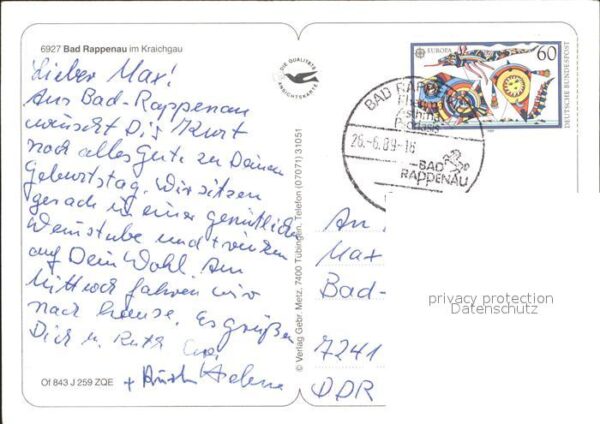 6927 Bad Rappenau im Kraichgau
Lieber Max!
Aus Bad-Rappenau
wünscht Dir Kurt
noch alles Gute zu Deinem
Geburtstag. Wir sitzen
gerade in einer gemütlichen
Weinstube und trinken
auf Dein Wohl. Am
Mittwoch fahren wir
nach hause. Es grüßen
Dich u. Ruth
+ Helene
Of 843 J 259 ZQE
DIE QUALITÄTS
ANSICHTSKARTE
© Verlag Gebr. Metz, 7400 Tübingen, Telefon (07071) 31051
EUROPA
60
DEUTSCHE BUNDESPOST
BAD RAPP
Rheuma
Asthma
Psoriasis
26.-6.89-16
BAD
RAPPENAU
An
Max
Bad-
7241
DDR
privacy protection
Datenschutz